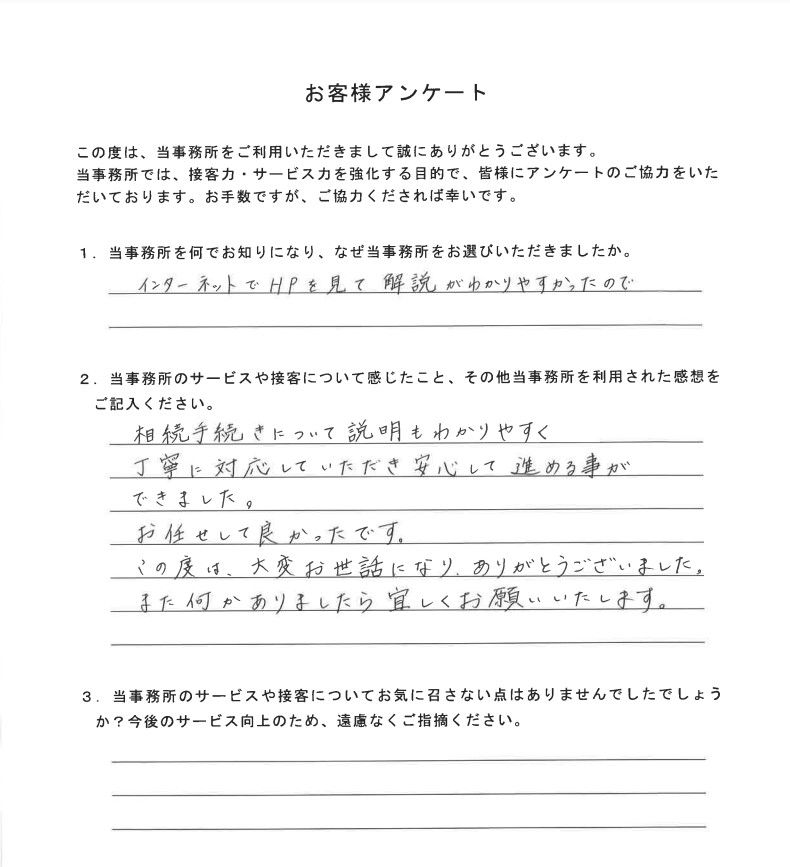 お客様アンケート
この度は、当事務所をご利用いただきまして誠にありがとうございます。
当事務所では、接客力・サービス力を強化する目的で、皆様にアンケートのご協力をいた
だいております。お手数ですが、ご協力くだされば幸いです。
１．当事務所を何でお知りになり、なぜ当事務所をお選びいただきましたか。
インターネットでHPを見て解説がわかりやすかったので
２．当事務所のサービスや接客について感じたこと、その他当事務所を利用された感想を
ご記入ください。
相続手続きについて説明もわかりやすく
丁寧に対応していただき安心して進める事が
できました。
お任せして良かったです。
この度は、大変お世話になり、ありがとうございました。
また何かありましたら宜しくお願いいたします。
３．当事務所のサービスや接客についてお気に召さない点はありませんでしたでしょう
か？今後のサービス向上のため、遠慮なくご指摘ください。